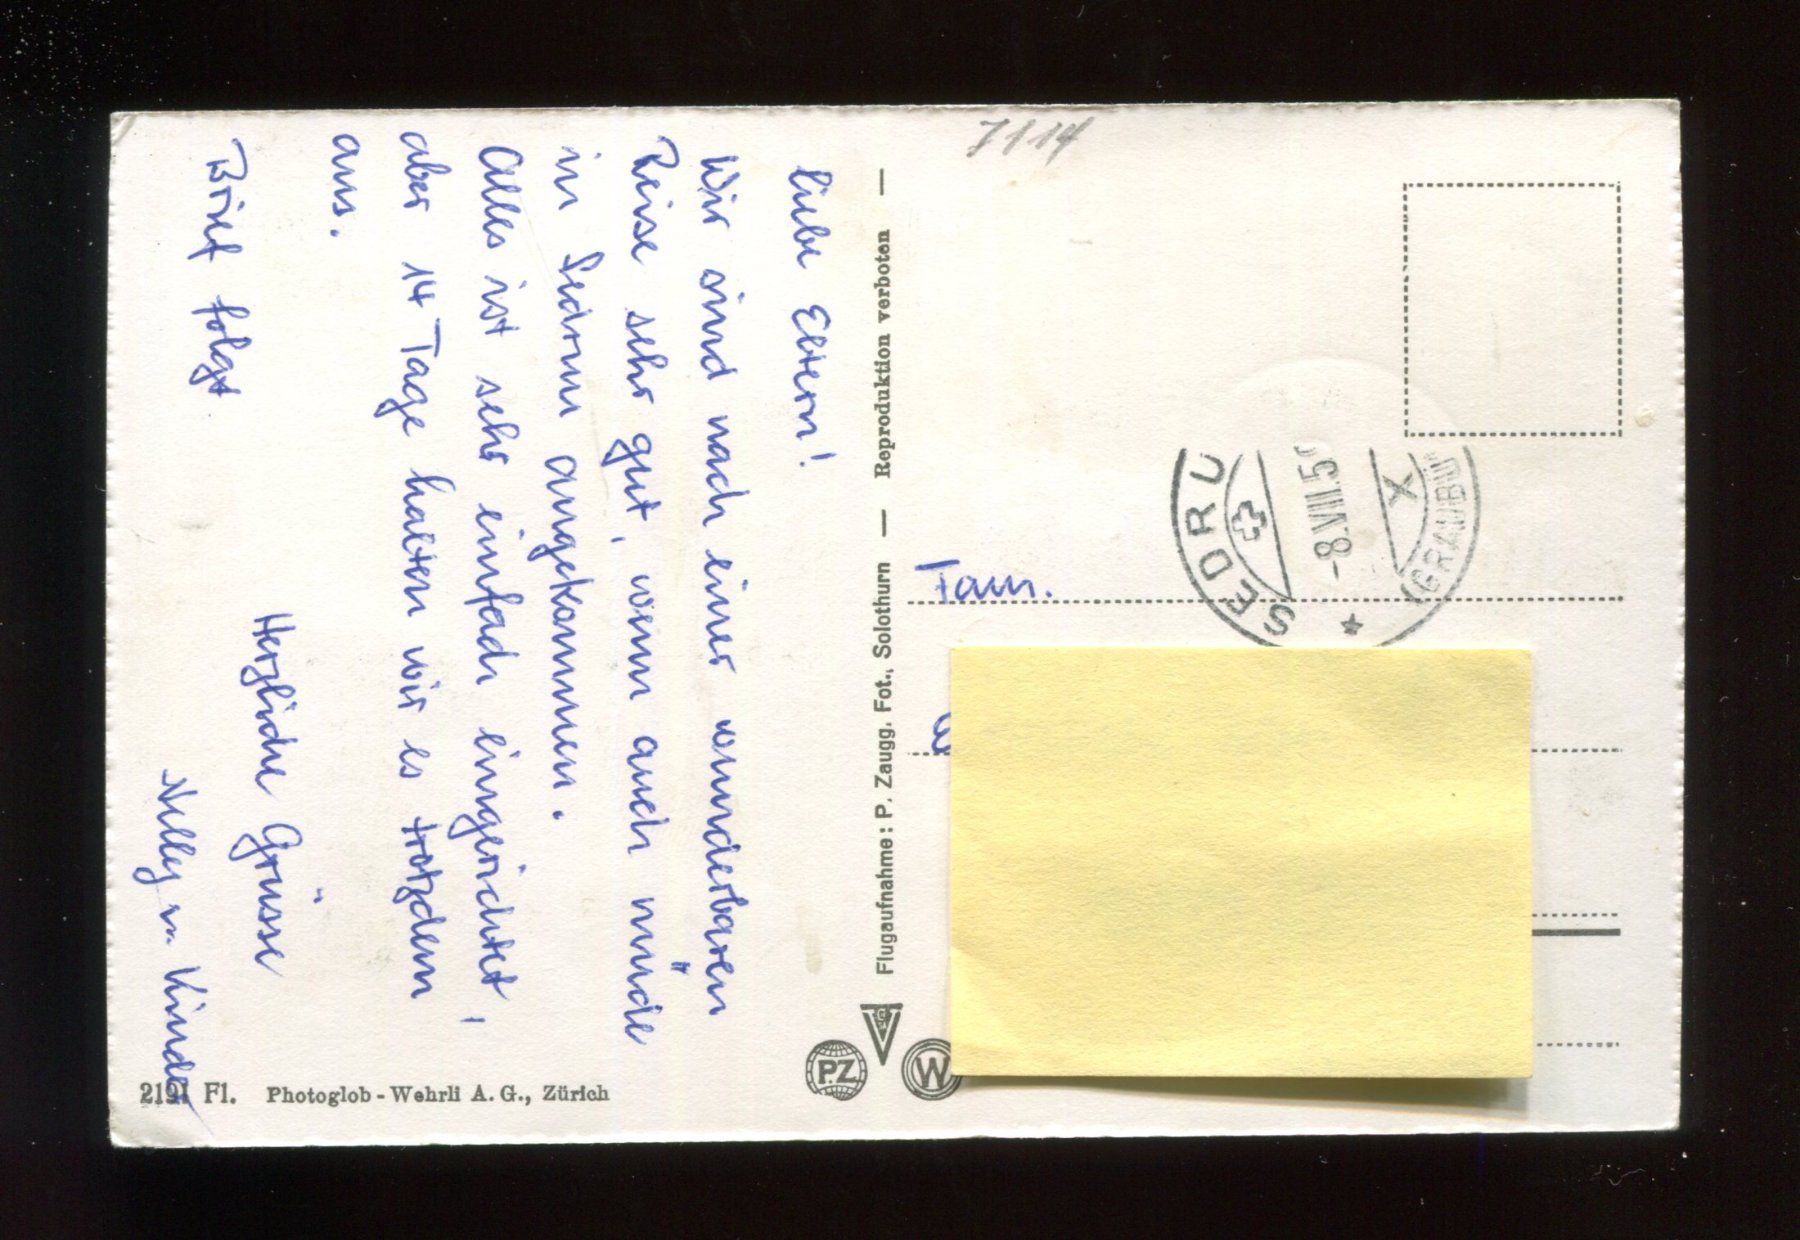 Liebe Eltern!
Wir sind nach einer wunderbaren
Reise sehr gut, wenn auch müde
in Sedrun angekommen.
Alles ist sehr einfach eingerichtet,
aber 14 Tage halten wir es trotzdem
aus.
Brief folgt.
Herzliche Grüsse
Nelly u. Kinder
2191 Fl. Photoglob-Wehrli A. G., Zürich
Flugaufnahme: P. Zaugg, Fot., Solothurn — Reproduktion verboten —
PZ
W
7114
SEDRU
-8.VIII.5
X
(GRAUBÜ
Fam.